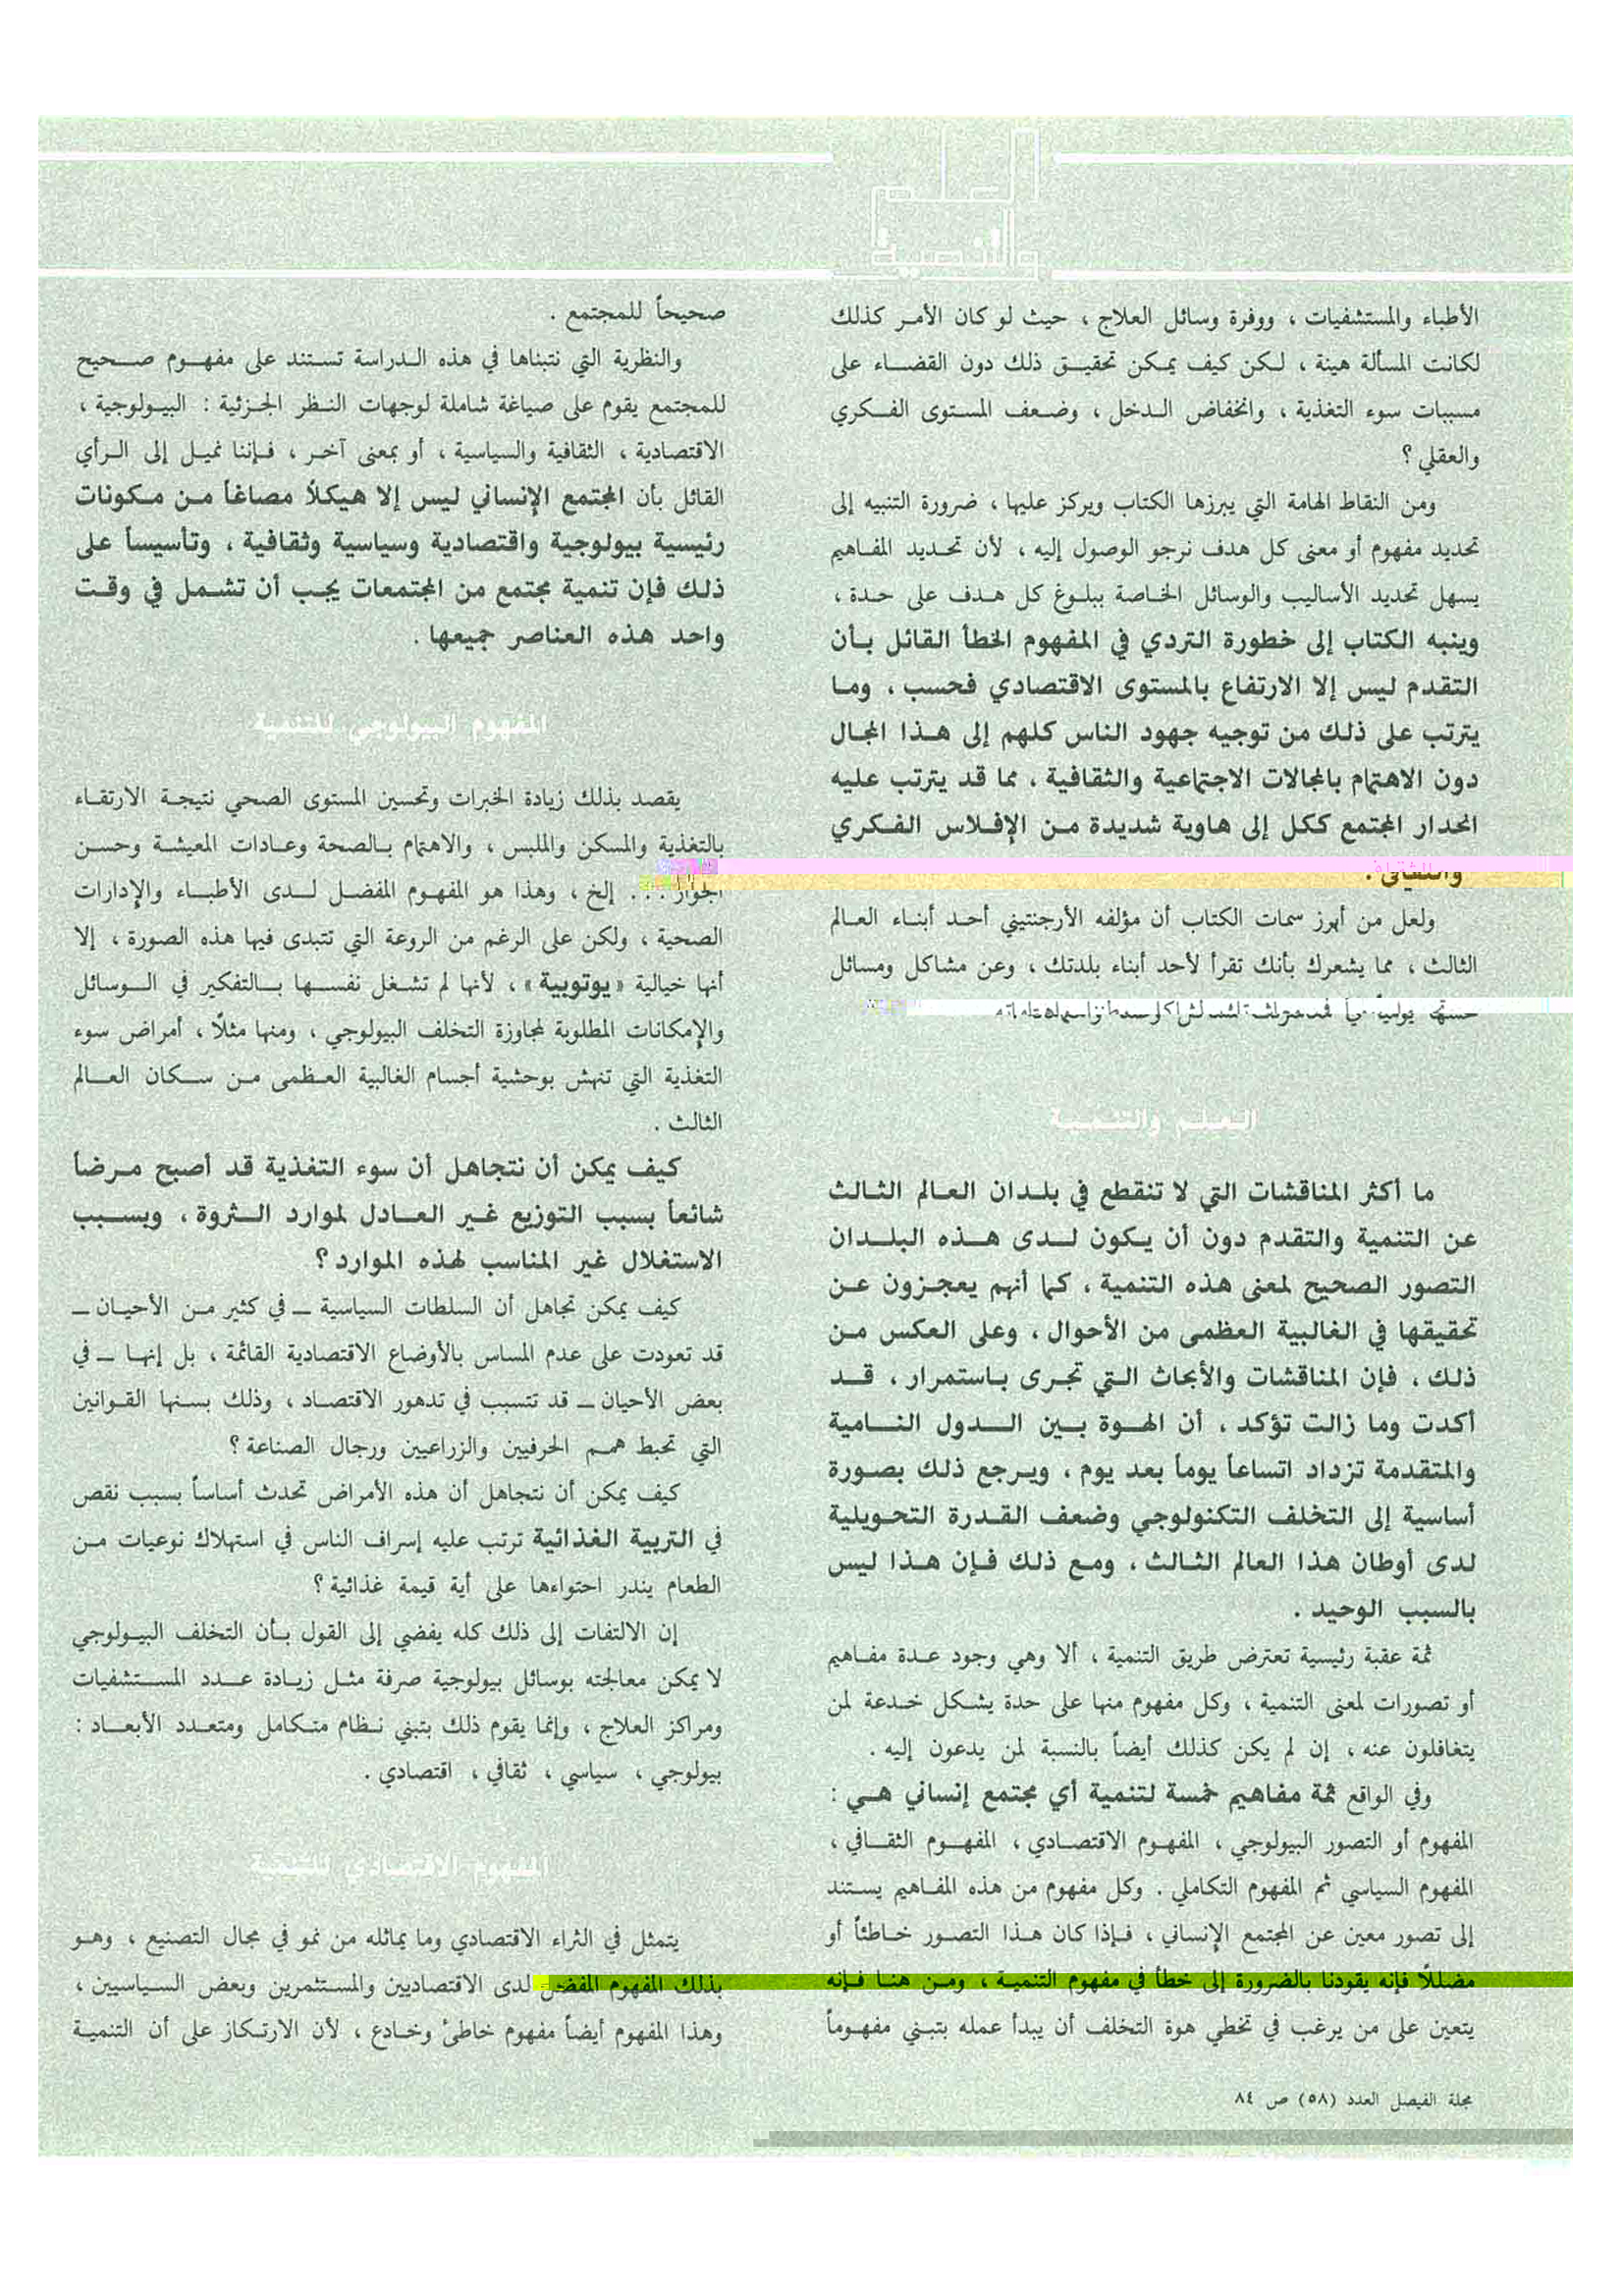 العلم
والتنمية
الأطباء والمستشفيات ، ووفرة وسائل العلاج ، حيث لو كان الأمر كذلك
لكانت المسألة هينة ، لكن كيف يمكن تحقيق ذلك دون القضاء على
مسببات سوء التغذية ، وانخفاض الدخل ، وضعف المستوى الفكري
والعقلي ؟
ومن النقاط الهامة التي يبرزها الكتاب ويركز عليها ، ضرورة التنبيه إلى
تحديد مفهوم أو معنى كل هدف نرجو الوصول إليه ، لأن تحديد المفاهيم
يسهل تحديد الأساليب والوسائل الخاصة ببلوغ كل هدف على حدة ،
وينبه الكتاب إلى خطورة التردي في المفهوم الخطأ القائل بأن
التقدم ليس إلا الارتفاع بالمستوى الاقتصادي فحسب ، وما
يترتب على ذلك من توجيه جهود الناس كلهم إلى هذا المجال
دون الاهتمام بالمجالات الاجتماعية والثقافية ، مما قد يترتب عليه
انحدار المجتمع ككل إلى هاوية شديدة من الإفلاس الفكري
والثقافي .
ولعل من أبرز سمات الكتاب أن مؤلفه الأرجنتيني أحد أبناء العالم
الثالث ، مما يشعرك بأنك تقرأ لأحد أبناء بلدتك ، وعن مشاكل ومسائل
العلم والتنمية
ما أكثر المناقشات التي لا تنقطع في بلدان العالم الثالث
عن التنمية والتقدم دون أن يكون لدى هذه البلدان
التصور الصحيح لمعنى هذه التنمية ، كما أنهم يعجزون عن
تحقيقها في الغالبية العظمى من الأحوال ، وعلى العكس من
ذلك ، فإن المناقشات والأبحاث التي تجرى باستمرار ، قد
أكدت وما زالت تؤكد ، أن الهوة بين الدول النامية
والمتقدمة تزداد اتساعاً يوماً بعد يوم ، ويرجع ذلك بصورة
أساسية إلى التخلف التكنولوجي وضعف القدرة التحويلية
لدى أوطان هذا العالم الثالث ، ومع ذلك فإن هذا ليس
بالسبب الوحيد .
ثمة عقبة رئيسية تعترض طريق التنمية ، ألا وهي وجود عدة مفاهيم
أو تصورات لمعنى التنمية ، وكل مفهوم منها على حدة يشكل خدعة لمن
يتغافلون عنه ، إن لم يكن كذلك أيضاً بالنسبة لمن يدعون إليه .
وفي الواقع ثمة مفاهيم خمسة لتنمية أي مجتمع إنساني هي :
المفهوم أو التصور البيولوجي ، المفهوم الاقتصادي ، المفهوم الثقافي ،
المفهوم السياسي ثم المفهوم التكاملي . وكل مفهوم من هذه المفاهيم يستند
إلى تصور معين عن المجتمع الإنساني ، فإذا كان هذا التصور خاطئاً أو
مضللاً فإنه يقودنا بالضرورة إلى خطأ في مفهوم التنمية ، ومن هنا فإنه
يتعين على من يرغب في تخطي هوة التخلف أن يبدأ عمله بتبني مفهوماً
صحيحاً للمجتمع .
والنظرية التي نتبناها في هذه الدراسة تستند على مفهوم صحيح
للمجتمع يقوم على صياغة شاملة لوجهات النظر الجزئية : البيولوجية ،
الاقتصادية ، الثقافية والسياسية ، أو بمعنى آخر ، فإننا نميل إلى الرأي
القائل بأن المجتمع الإنساني ليس إلا هيكلاً مصاغاً من مكونات
رئيسية بيولوجية واقتصادية وسياسية وثقافية ، وتأسيساً على
ذلك فإن تنمية مجتمع من المجتمعات يجب أن تشمل في وقت
واحد هذه العناصر جميعها .
المفهوم البيولوجي للتنمية
يقصد بذلك زيادة الخبرات وتحسين المستوى الصحي نتيجة الارتقاء
بالتغذية والمسكن والملبس ، والاهتمام بالصحة وعادات المعيشة وحسن
الجوار . . . إلخ ، وهذا هو المفهوم المفضل لدى الأطباء والإدارات
الصحية ، ولكن على الرغم من الروعة التي تتبدى فيها هذه الصورة ، إلا
أنها خيالية « يوتوبية » ، لأنها لم تشغل نفسها بالتفكير في الوسائل
والإمكانات المطلوبة لمجاوزة التخلف البيولوجي ، ومنها مثلاً ، أمراض سوء
التغذية التي تنهش بوحشية أجسام الغالبية العظمى من سكان العالم
الثالث .
كيف يمكن أن نتجاهل أن سوء التغذية قد أصبح مرضاً
شائعاً بسبب التوزيع غير العادل لموارد الثروة ، وبسبب
الاستغلال غير المناسب لهذه الموارد ؟
كيف يمكن تجاهل أن السلطات السياسية ــ في كثير من الأحيان ــ
قد تعودت على عدم المساس بالأوضاع الاقتصادية القائمة ، بل إنها ــ في
بعض الأحيان ــ قد تتسبب في تدهور الاقتصاد ، وذلك بسنها القوانين
التي تحبط همم الحرفيين والزراعيين ورجال الصناعة ؟
كيف يمكن أن نتجاهل أن هذه الأمراض تحدث أساساً بسبب نقص
في التربية الغذائية ترتب عليه إسراف الناس في استهلاك نوعيات من
الطعام يندر احتواءها على أية قيمة غذائية ؟
إن الالتفات إلى ذلك كله يفضي إلى القول بأن التخلف البيولوجي
لا يمكن معالجته بوسائل بيولوجية صرفة مثل زيادة عدد المستشفيات
ومراكز العلاج ، وإنما يقوم ذلك بتبني نظام متكامل ومتعدد الأبعاد :
بيولوجي ، سياسي ، ثقافي ، اقتصادي .
المفهوم الاقتصادي للتنمية
يتمثل في الثراء الاقتصادي وما يماثله من نمو في مجال التصنيع ، وهو
بذلك المفهوم المفضل لدى الاقتصاديين والمستثمرين وبعض السياسيين ،
وهذا المفهوم أيضاً مفهوم خاطئ وخادع ، لأن الارتكاز على أن التنمية
مجلة الفيصل العدد (٥٨) ص ٨٤